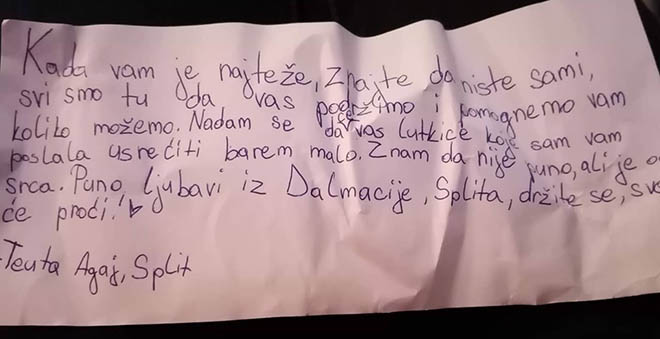 Kada vam je najteže, Znajte da niste sami,
svi smo tu da vas podržimo i pomognemo vam
koliko možemo. Nadam se da će vas lutkice koje sam vam
poslala usrećiti barem malo. Znam da nije puno, ali je o
srca. Puno ljubavi iz Dalmacije, Splita, držite se, sve
će proći!
Teuta Agaj, Split